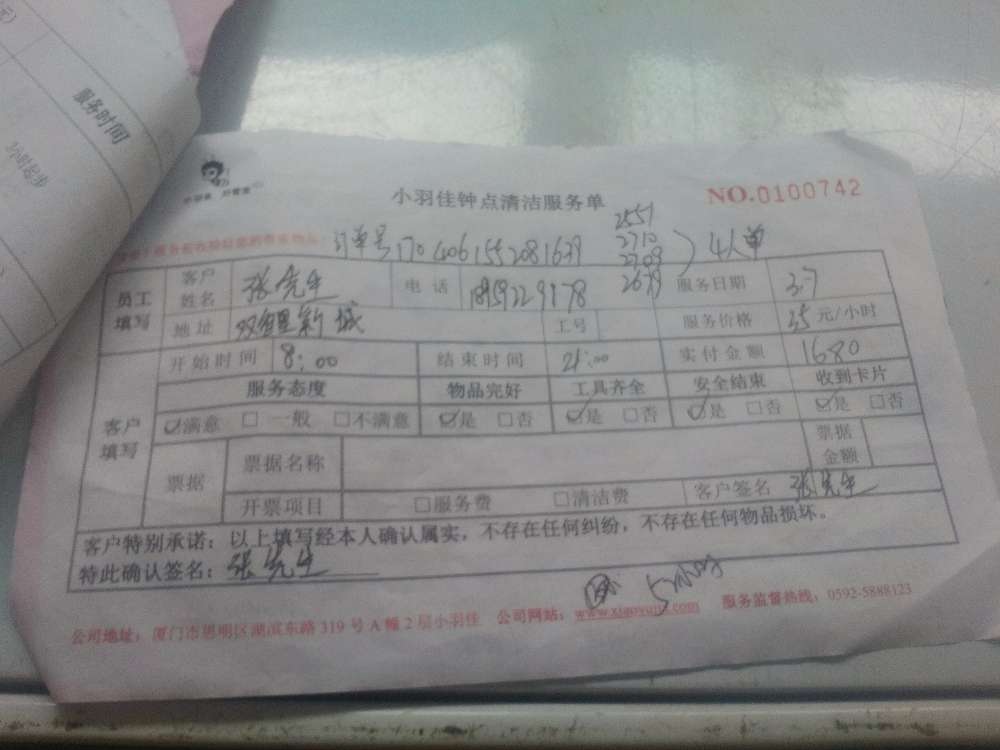 服务时间
小羽佳钟点清洁服务单
NO.0100742
2551
2710
订单号 4人单
员工填写 客户姓名 张先生 电话 服务日期 3.7
地址 双鲤新城 工号 服务价格 35元/小时
客户填写 开始时间 8:00 结束时间 21:00 实付金额 1680
服务态度 物品完好 工具齐全 安全结束 收到卡片
☑满意 □一般 □不满意 ☑是 □否 ☑是 □否 ☑是 □否 ☑是 □否
票据 票据名称 票据金额
开票项目 □服务费 □清洁费 客户签名 张先生
客户特别承诺：以上填写经本人确认属实，不存在任何纠纷，不存在任何物品损坏。
特此确认签名：张先生
公司地址：厦门市思明区湖滨东路319号A幢2层小羽佳 公司网站：www.xiaoyujia.com 服务监督热线：0592-5888123